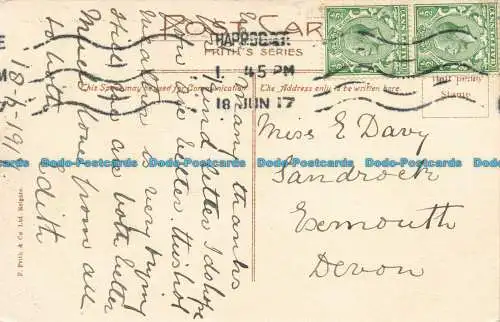 POST CARD
FRITH'S SERIES
HARROGATE
1 45 PM
18 JUN 17
This Space may be used for Communication
The Address only to be written here.
Half penny
Stamp
Miss E Davy
Sandrock
Exmouth
Devon
18-6-191
many thanks
kind letter I do hope
you are better. this hot
weather is very trying
still we are both better
Much love from all
to both
Edith
F. Frith & Co Ltd. Reigate
Dodo-Postcards Dodo-Postcards Dodo-Postcards Dodo-Postcards Dodo-Postcards